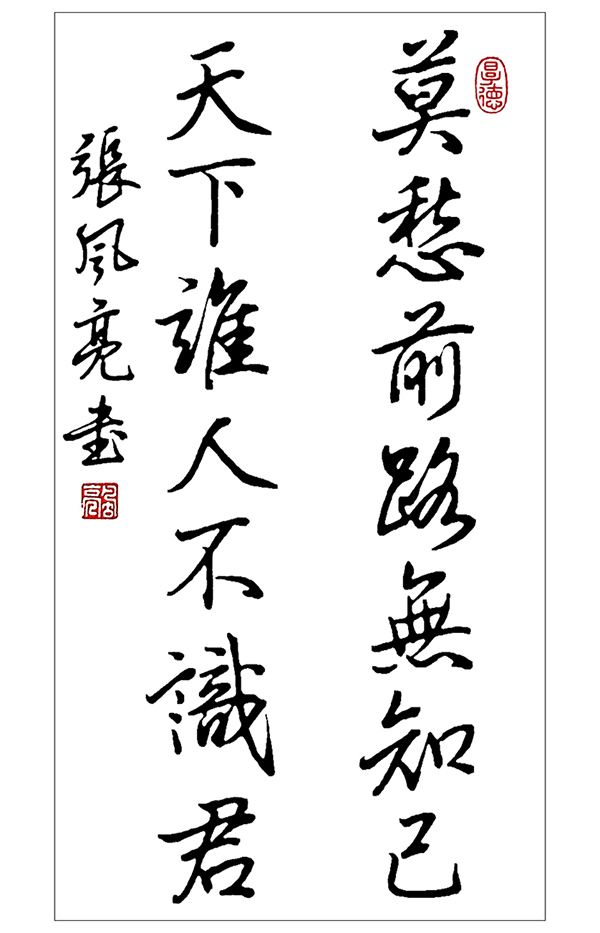 莫愁前路無知己
天下誰人不識君
張風亮書